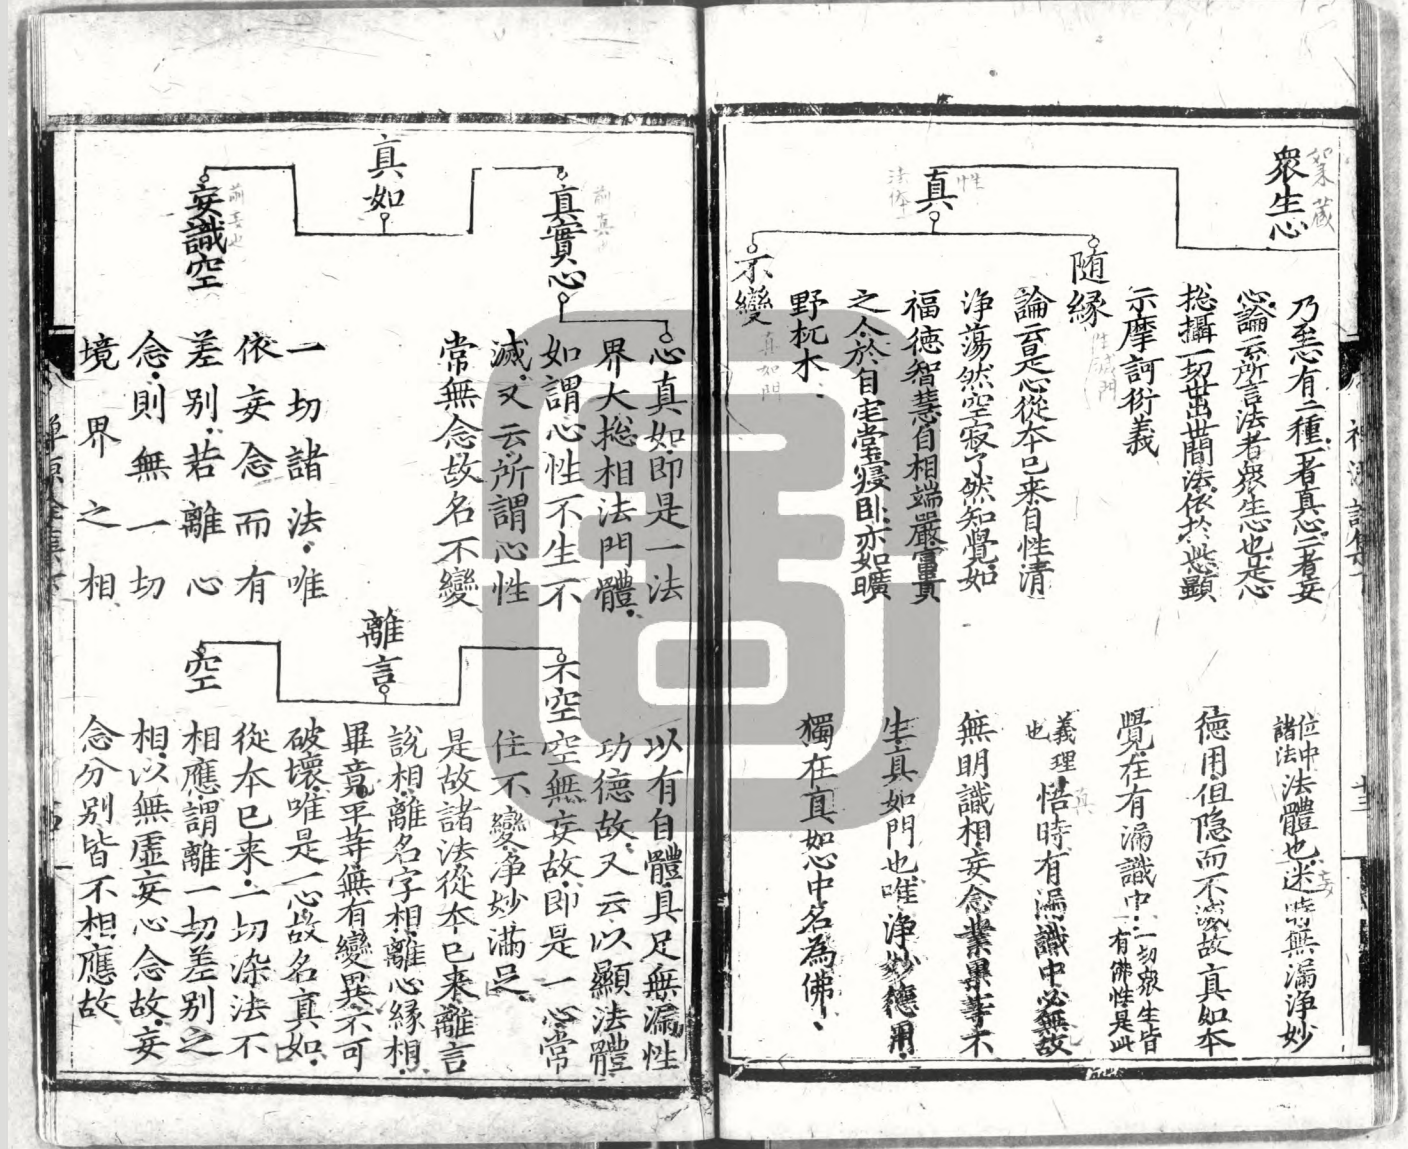 衆生心
乃至心有二種一者真心二者妄
心論云所言法者衆生心也是心
揔攝一切世出世間法依於此心顯
示摩訶衍義
真
随縁
論云是心從本已来自性清
浄蕩然空寂了然知覺如
福徳智慧自相端嚴冨貴
之人於自宅堂寝卧亦如曠
野杌木
不變
位中
諸法
法體也迷時無漏浄妙
徳用但隐而不滅故真如本
覺在有漏識中
一切衆生皆
有佛性是此
義理
也
悟時有漏識中必無故
無明識相妄念業果等不
生真如門也唯浄妙徳用
獨在真如心中名為佛
真如
真實心
心真如即是一法
界大揔相法門體
如謂心性不生不
滅又云所謂心性
常無念故名不變
妄識空
一切諸法唯
依妄念而有
差别若離心
念則無一切
境界之相
離言
不空
以有自體具足無漏性
功德故又云以顯法體
空無妄故即是一心常
住不變浄妙滿足
是故諸法從本已来離言
說相離名字相離心縁相
畢竟平等無有變異不可
破壞唯是一心故名真如
空
從本已来一切染法不
相應謂離一切差别之
相以無虚妄心念故妄
念分别皆不相應故